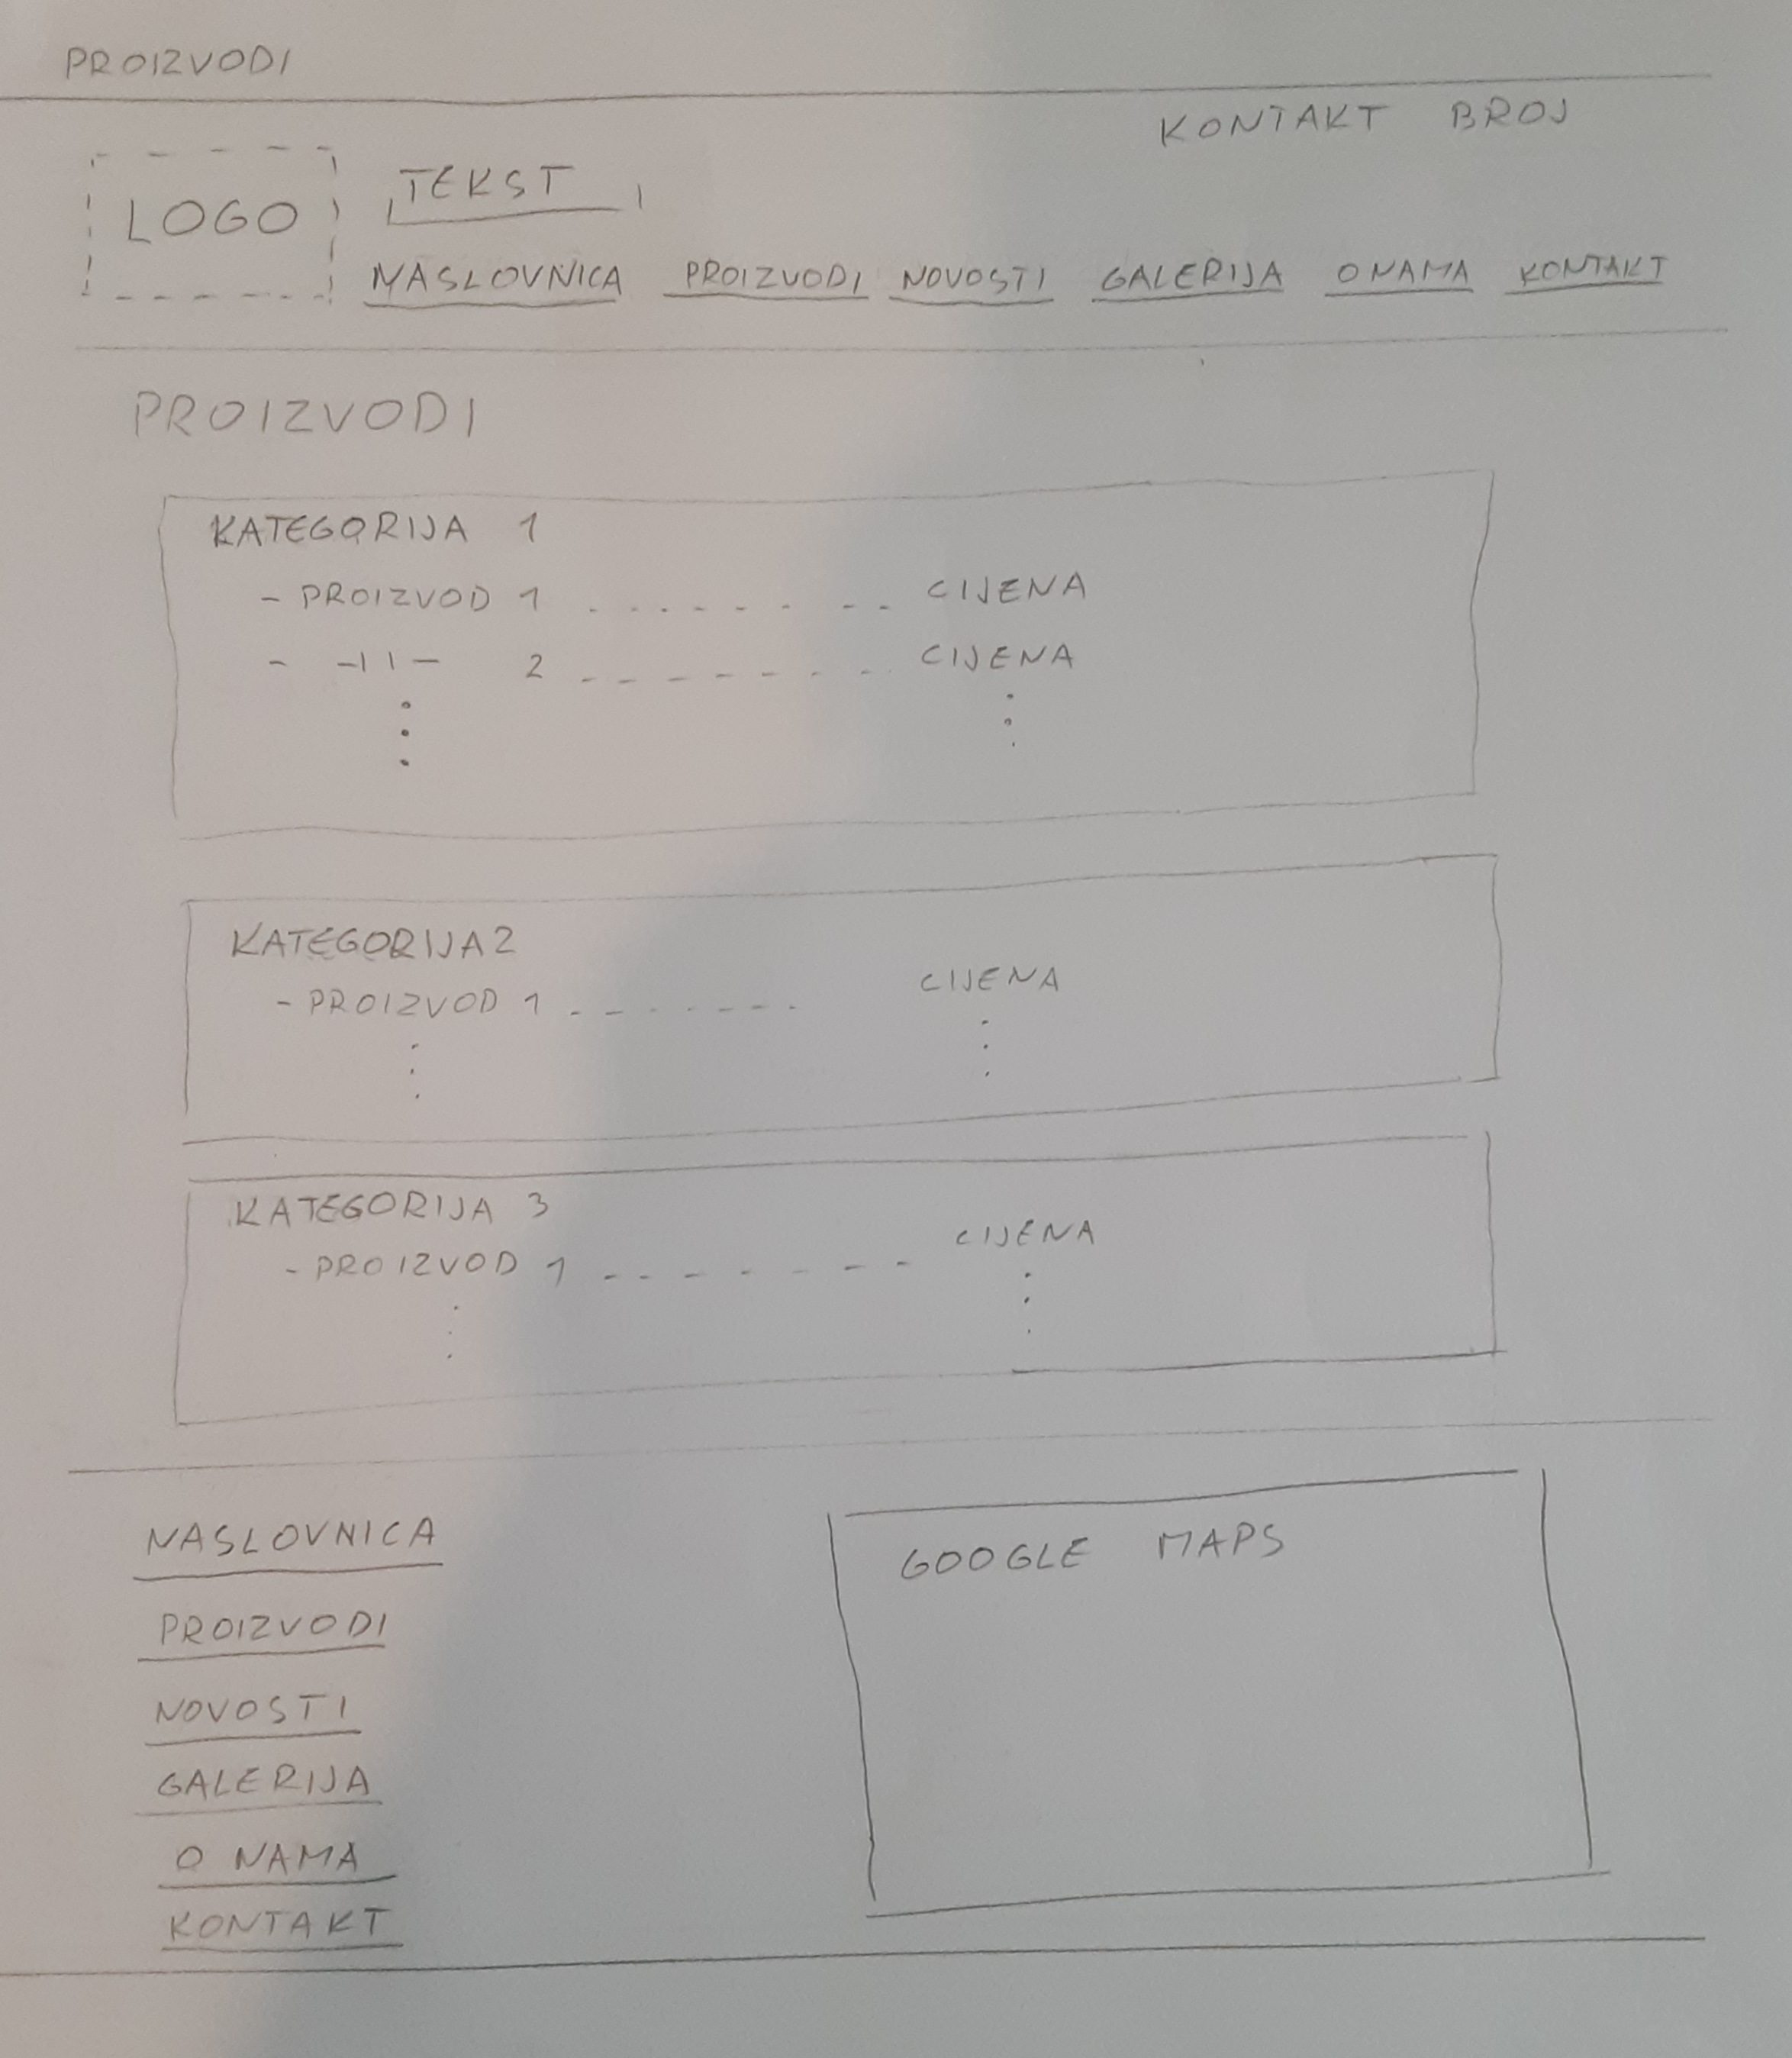 PROIZVODI
KONTAKT BROJ
LOGO
TEKST
NASLOVNICA PROIZVODI NOVOSTI GALERIJA O NAMA KONTAKT
PROIZVODI
KATEGORIJA 1
- PROIZVOD 1 . . . . . . - - - CIJENA
- -11- 2 - - - - - - - - CIJENA
KATEGORIJA 2
- PROIZVOD 1 - - - - - - - CIJENA
KATEGORIJA 3
- PROIZVOD 1 - - - - - - - CIJENA
NASLOVNICA
PROIZVODI
NOVOSTI
GALERIJA
O NAMA
KONTAKT
GOOGLE MAPS